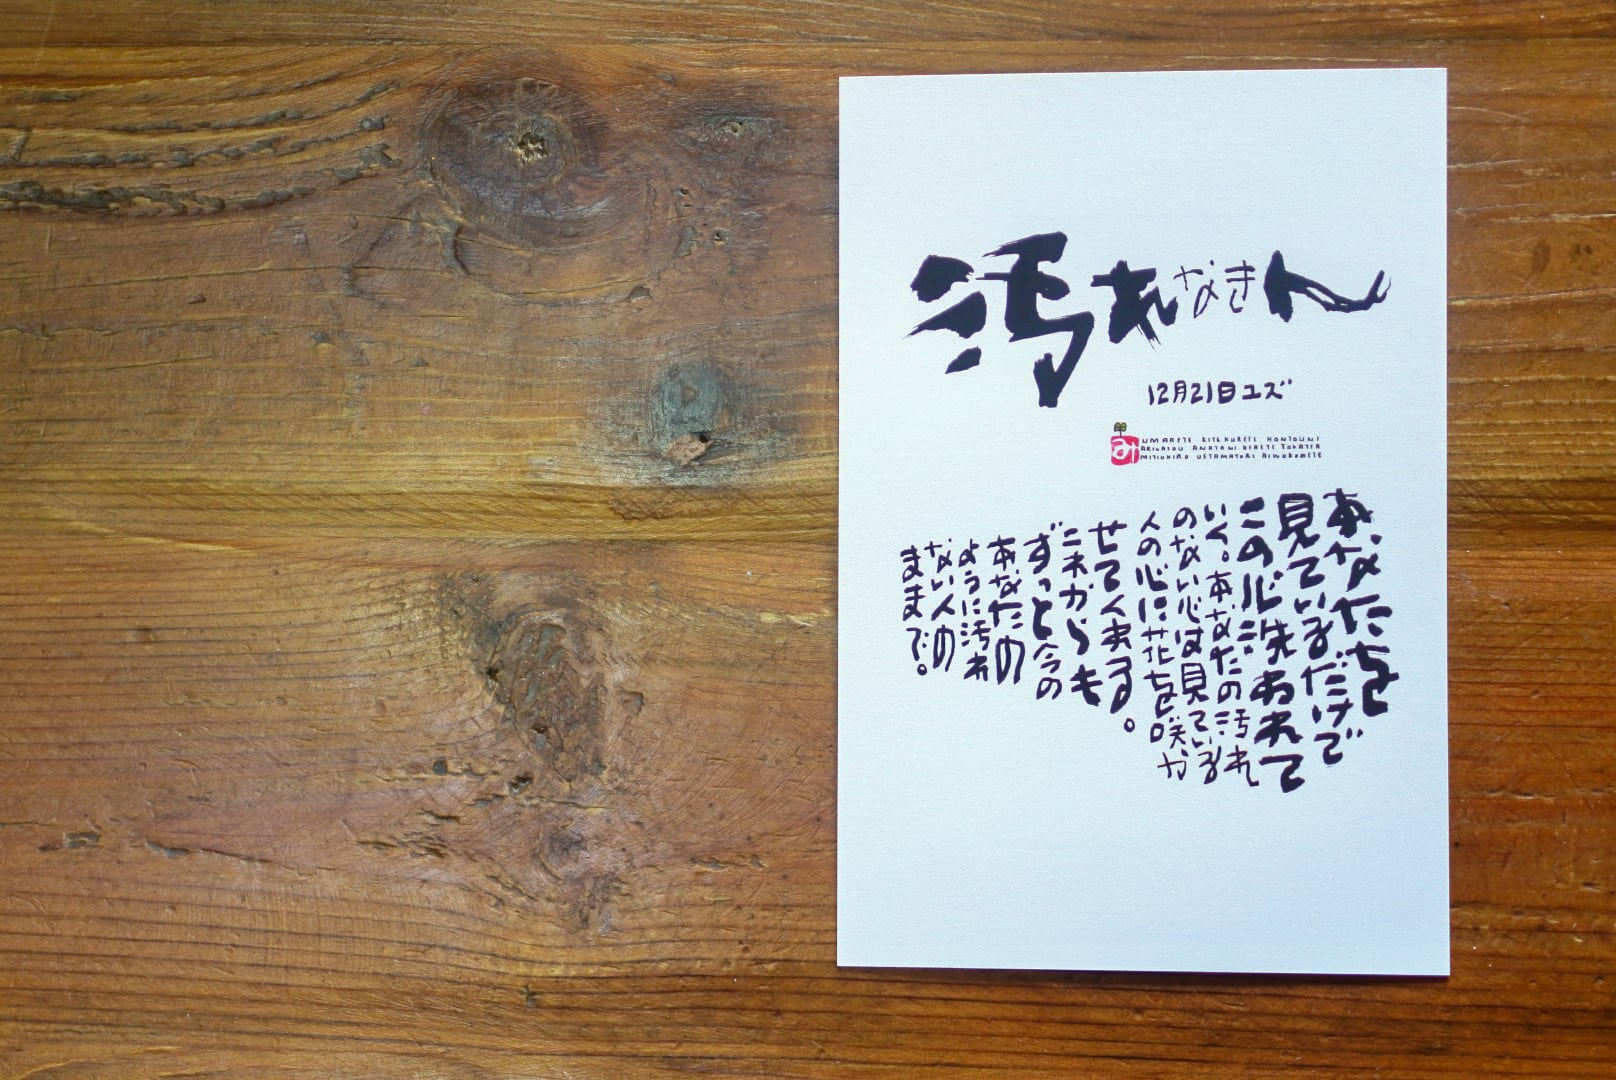 汚れなき人
12月21日ユズ
み
UMARETE KITEKURETE HONTOUNI
ARIGATOU ANATANI DEAETE YOKATTA
MITIUHIRO UETAMATORI AIWOKOMETE
あなたを
見ているだけで
この心が洗われて
いく。あなたの汚れ
のない心は見ている
人の心に花を咲か
せてくれる。
これからも
ずっと今の
あなたの
ように汚れ
ない人の
ままで。